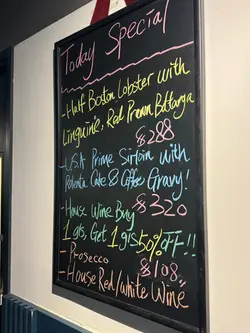 Today Special
- Half Boston Lobster with
Linguine, Red Prawn Bottarga
$288
- USA Prime Sirloin with
Polenta Cake & Coffee Gravy!
$320
- House Wine Buy
1 gls, Get 1 gls 50% OFF!!
- Prosecco
$108
- House Red/White Wine